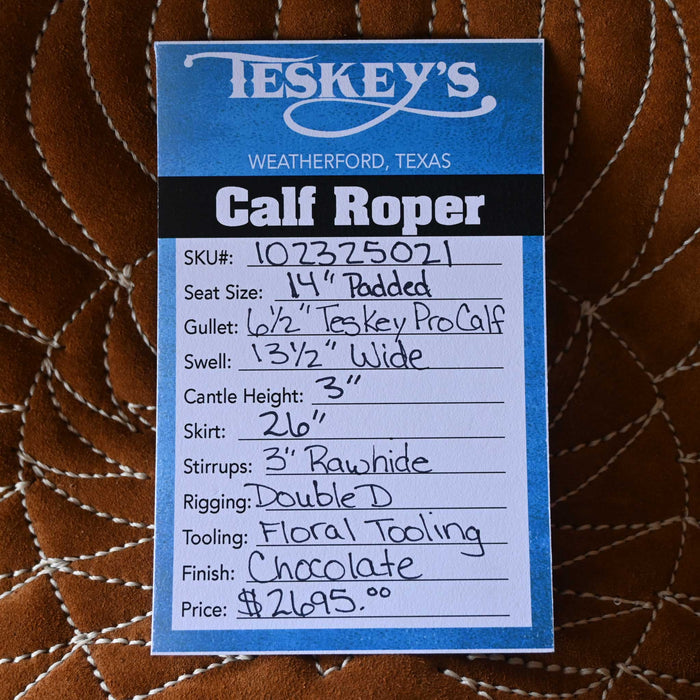 TESKEY'S
WEATHERFORD, TEXAS
Calf Roper
SKU#: 102325021
Seat Size: 14" Padded
Gullet: 6½" Teskey Pro Calf
Swell: 13½" Wide
Cantle Height: 3"
Skirt: 26"
Stirrups: 3" Rawhide
Rigging: Double D
Tooling: Floral Tooling
Finish: Chocolate
Price: $2695.00